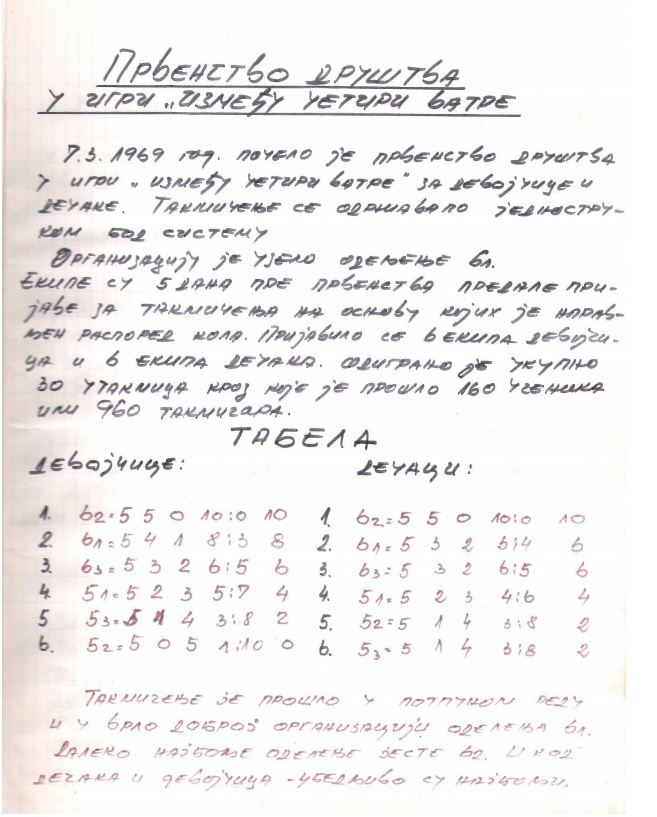 ПРВЕНСТВО ДРУШТВА
У ИГРИ „ИЗМЕЂУ ЧЕТИРИ ВАТРЕ
7.3. 1969 год. ПОЧЕЛО ЈЕ ПРВЕНСТВО ДРУШТВА
У ИГРИ „ИЗМЕЂУ ЧЕТИРИ ВАТРЕ" ЗА ДЕВОЈЧИЦЕ И
ДЕЧАКЕ. ТАКМИЧЕЊЕ СЕ ОДРЖАВАЛО ЈЕДНОСТРУ-
КОМ БОД СИСТЕМУ
ОРГАНИЗАЦИЈУ ЈЕ УЗЕЛО ОДЕЉЕЊЕ 61.
ЕКИПЕ СУ 5 ДАНА ПРЕ ПРВЕНСТВА ПРЕДАЛЕ ПРИ-
ЈАВЕ ЗА ТАКМИЧЕЊА НА ОСНОВУ КОЈИХ ЈЕ НАПРАВ-
ЉЕН РАСПОРЕД КОЛА. ПРИЈАВИЛО СЕ 6 ЕКИПА ДЕВОЈЧИ-
ЦА И 6 ЕКИПА ДЕЧАКА. ОДИГРАНО ЈЕ УКУПНО
30 УТАКМИЦА КРОЗ КОЈЕ ЈЕ ПРОШЛО 160 УЧЕНИКА
ИЛИ 960 ТАКМИЧАРА.
ТАБЕЛА
ДЕВОЈЧИЦЕ: ДЕЧАЦИ:
1. 62=5 5 0 10:0 10 1. 62=5 5 0 10:0 10
2. 61=5 4 1 8:3 8 2. 61=5 3 2 6:4 6
3. 63=5 3 2 6:5 6 3. 63=5 3 2 6:5 6
4. 51=5 2 3 5:7 4 4. 51=5 2 3 4:6 4
5 53=5 1 4 3:8 2 5. 52=5 1 4 3:8 2
6. 52=5 0 5 1:10 0 6. 53=5 1 4 3:8 2
ТАКМИЧЕЊЕ ЈЕ ПРОШЛО У ПОТПУНОМ РЕДУ
И У ВРЛО ДОБРОЈ ОРГАНИЗАЦИЈИ ОДЕЛЕЊА 61.
ДАЛЕКО НАЈБОЉЕ ОДЕЛЕЊЕ ЈЕСТЕ 62. И КОД
ДЕЧАКА И ДЕВОЈЧИЦА -УБЕДЉИВО СУ НАЈБОЉИ.